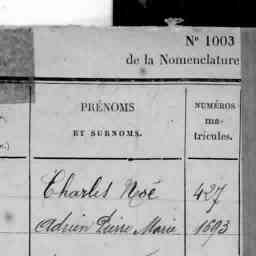 Nº 1003
de la Nomenclature
PRÉNOMS
ET SURNOMS.
NUMÉROS
ma-
tricules.
Charles Noé 427
Adrien Pierre Marie 1693